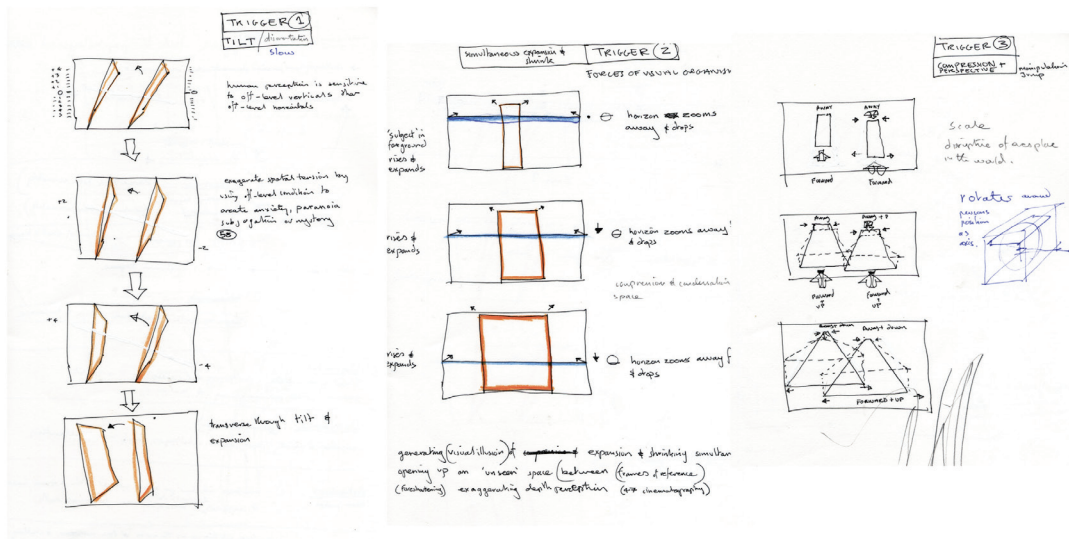 TRIGGER 1
TILT / disorientation
slow
human perception is sensitive
to off-level verticals than
off-level horizontals
exagerate spatial tension by
using off-level condition to
create anxiety, paranoia
subjugation or mystery
+2
-2
+4
-4
transverse through tilt &
expansion
simultaneous expansion &
shrink
TRIGGER 2
FORCES OF VISUAL ORGANIS
'subject' in
foreground
rises &
expands
horizon zooms
away & drops
rises &
expands
horizon zooms away
& drops
compression & condensation
space
rises &
expands
horizon zooms away f
& drops
generating (visual illusion) of expansion & shrinking simultan
opening up an 'unseen' space (between (frames of reference)
exaggerating depth perception cinematography)
TRIGGER 3
COMPRESSION +
PERSPECTIVE
manipulation
AWAY
AWAY
Forward
Forward
Scale
disruption of
in the world.
Away
Away
Forward
UP
Forward
UP
rotates around
persons
position
as
axis.
Away down
Away down
FORWARD + UP